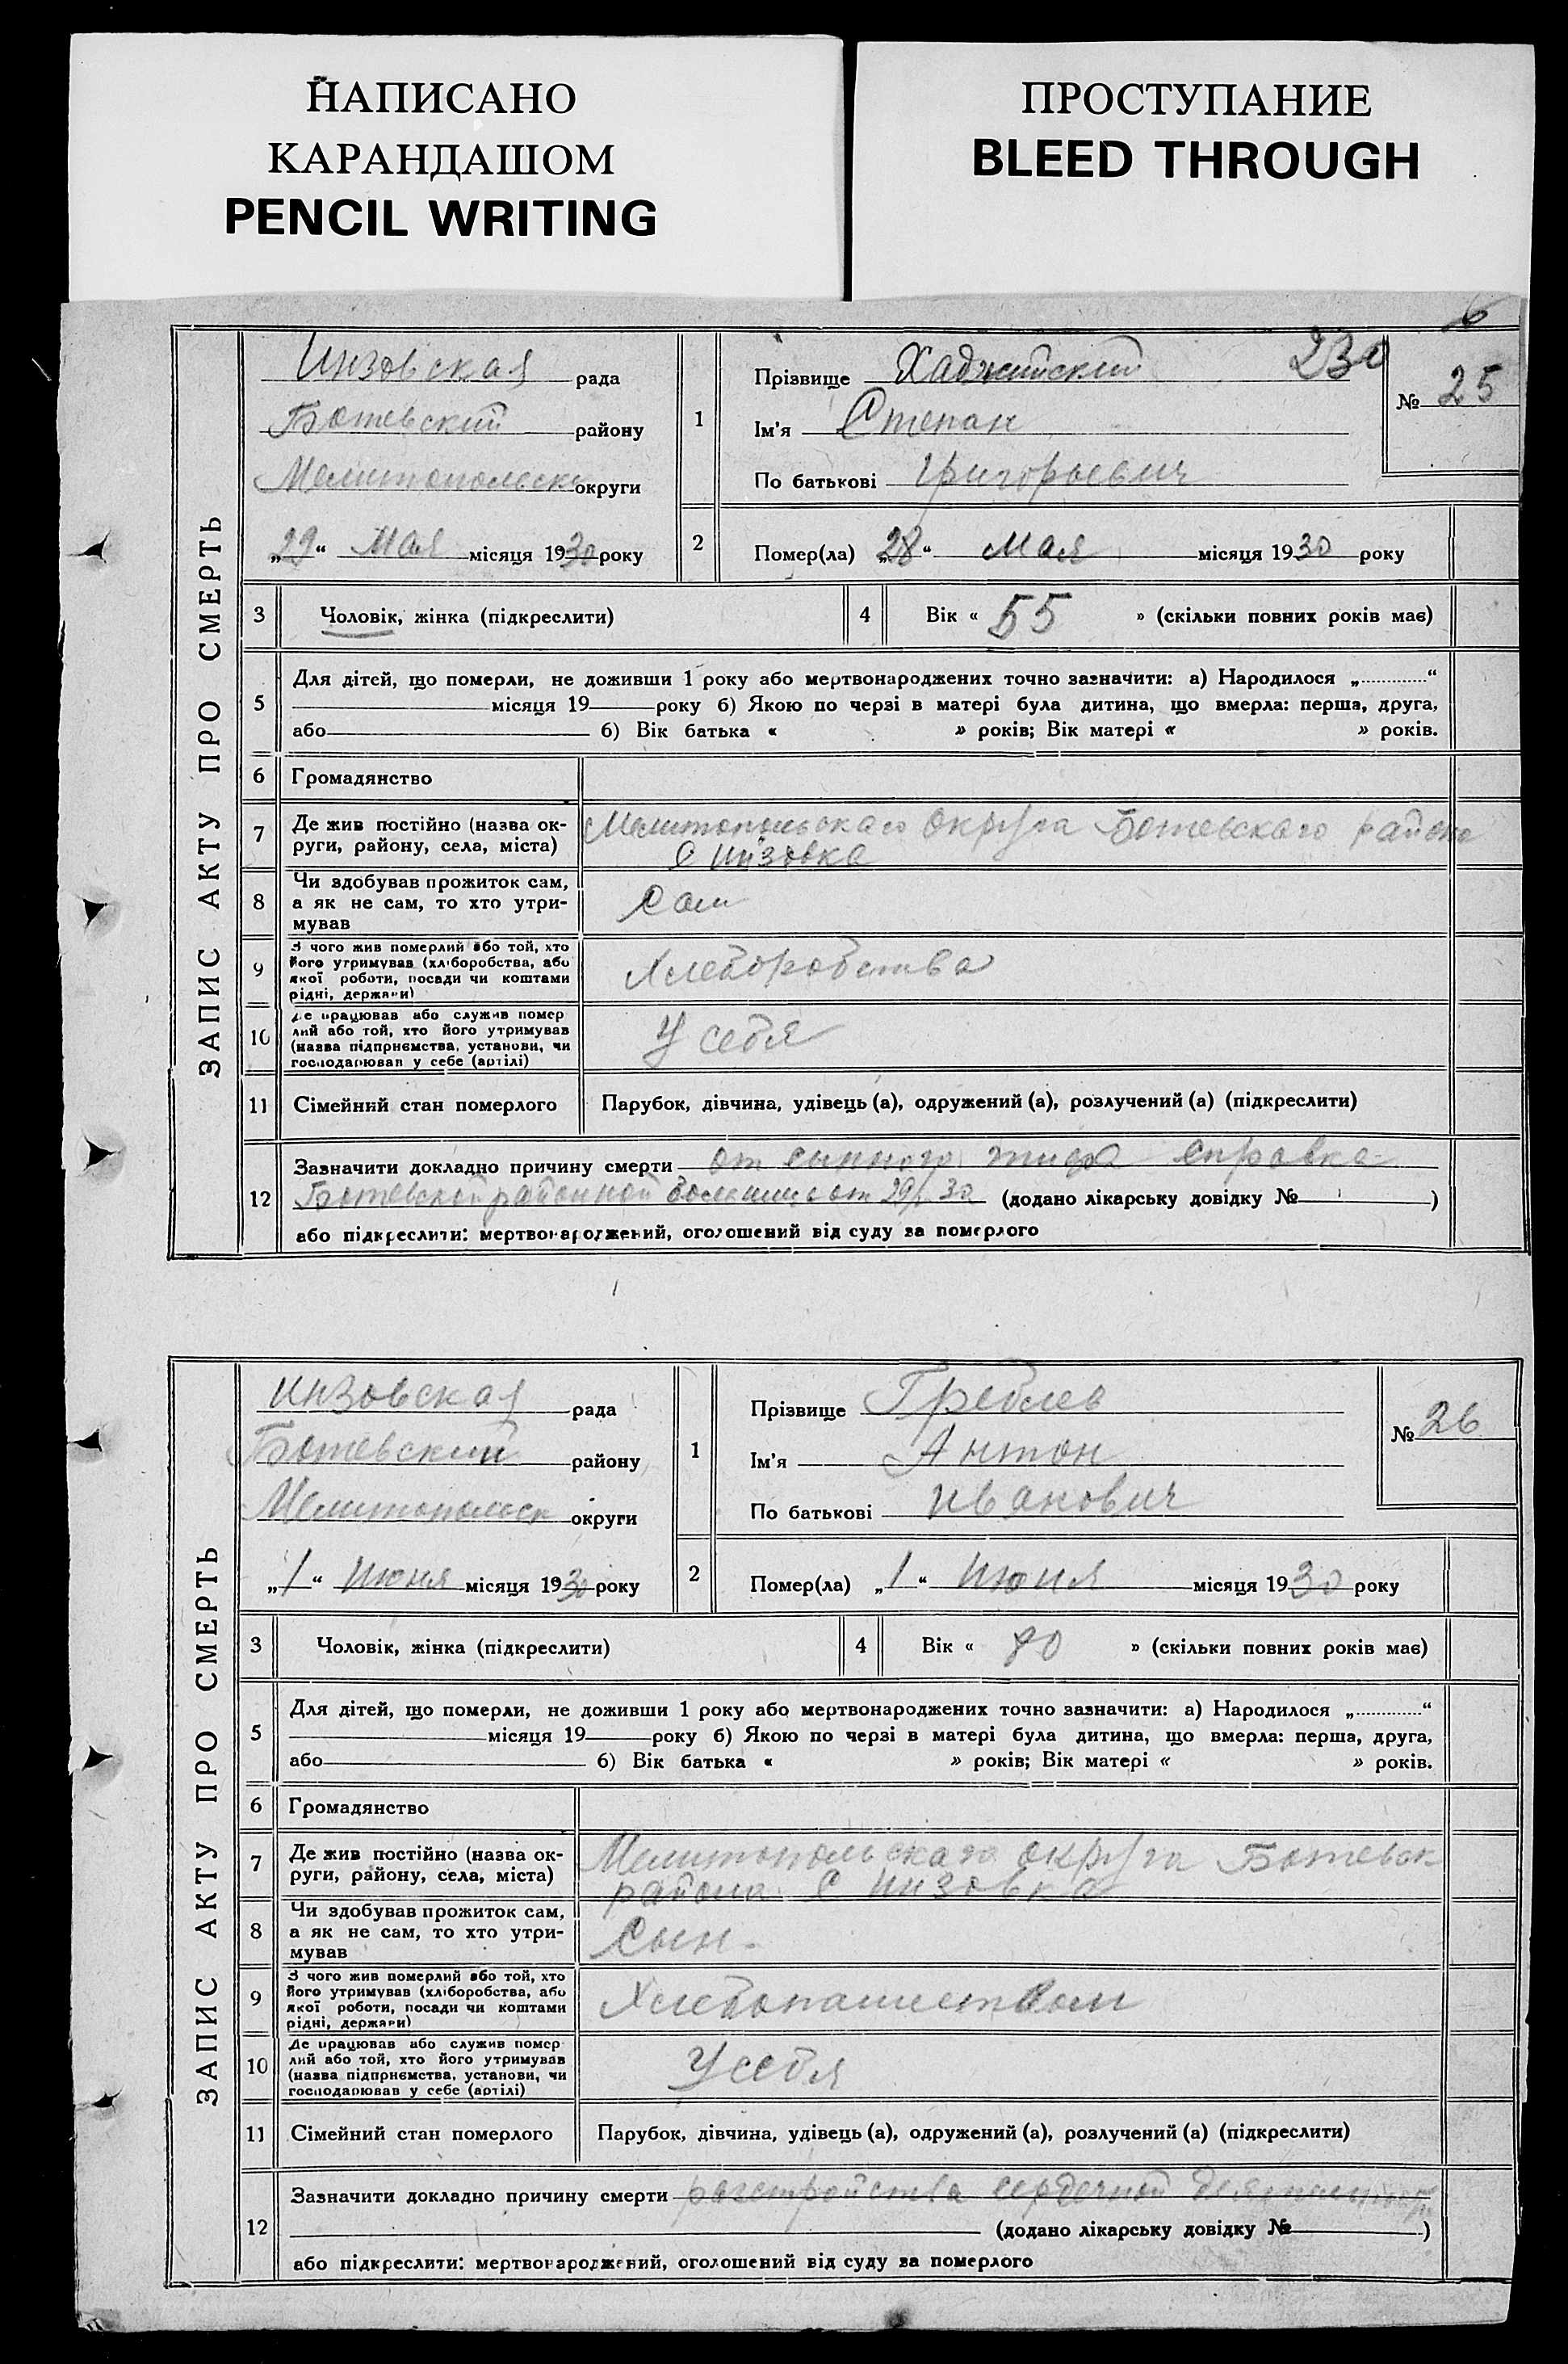 НАПИСАНО
КАРАНДАШОМ
PENCIL WRITING
ПРОСТУПАНИЕ
BLEED THROUGH
6
230
ЗАПИС АКТУ ПРО СМЕРТЬ
Инзовская рада
Ботевский району
Мелитопольск округи
„29“ Мая місяця 1930 року
1
Прізвище Хаджийский
Ім'я Степан
По батькові Григорьевич
№ 25
2 Помер(ла) „28“ Мая місяця 1930 року
3 Чоловік, жінка (підкреслити)
4 Вік « 55 » (скільки повних років має)
5 Для дітей, що померли, не доживши 1 року або мертвонароджених точно зазначити: а) Народилося „ “
місяця 19 року б) Якою по черзі в матері була дитина, що вмерла: перша, друга,
або б) Вік батька « » років; Вік матері « » років.
6 Громадянство
7 Де жив постійно (назва ок-
руги, району, села, міста)
Мелитопольскаго округа Ботевскаго района
С Инзовка
8 Чи здобував прожиток сам,
а як не сам, то хто утри-
мував
Сам
9 З чого жив померлий або той, хто
його утримував (хліборобства, або
якої роботи, посади чи коштами
рідні, держави)
Хлеборобства
10 Де працював або служив помер
лий або той, хто його утримував
(назва підприємства, установи, чи
господарював у себе (артілі)
У себя
11 Сімейний стан померлого Парубок, дівчина, удівець (а), одружений (а), розлучений (а) (підкреслити)
12 Зазначити докладно причину смерти от сыпного тифа справка
Ботевской районной больницы от 29/ 30 (додано лікарську довідку № )
або підкреслити: мертвонароджений, оголошений від суду за померлого
ЗАПИС АКТУ ПРО СМЕРТЬ
Инзовская рада
Ботевский району
Мелитопольск округи
„1“ Июня місяця 1930 року
1
Прізвище Греблев
Ім'я Антон
По батькові Иванович
№ 26
2 Помер(ла) „1“ Июня місяця 1930 року
3 Чоловік, жінка (підкреслити)
4 Вік « 80 » (скільки повних років має)
5 Для дітей, що померли, не доживши 1 року або мертвонароджених точно зазначити: а) Народилося „ “
місяця 19 року б) Якою по черзі в матері була дитина, що вмерла: перша, друга,
або б) Вік батька « » років; Вік матері « » років.
6 Громадянство
7 Де жив постійно (назва ок-
руги, району, села, міста)
Мелитопольскаго округа Ботевск
района С Инзовка
8 Чи здобував прожиток сам,
а як не сам, то хто утри-
мував
Сын
9 З чого жив померлий або той, хто
його утримував (хліборобства, або
якої роботи, посади чи коштами
рідні, держави)
Хлебопашеством
10 Де працював або служив помер
лий або той, хто його утримував
(назва підприємства, установи, чи
господарював у себе (артілі)
У себя
11 Сімейний стан померлого Парубок, дівчина, удівець (а), одружений (а), розлучений (а) (підкреслити)
12 Зазначити докладно причину смерти расстройства сердечной деятельности
(додано лікарську довідку № )
або підкреслити: мертвонароджений, оголошений від суду за померлого